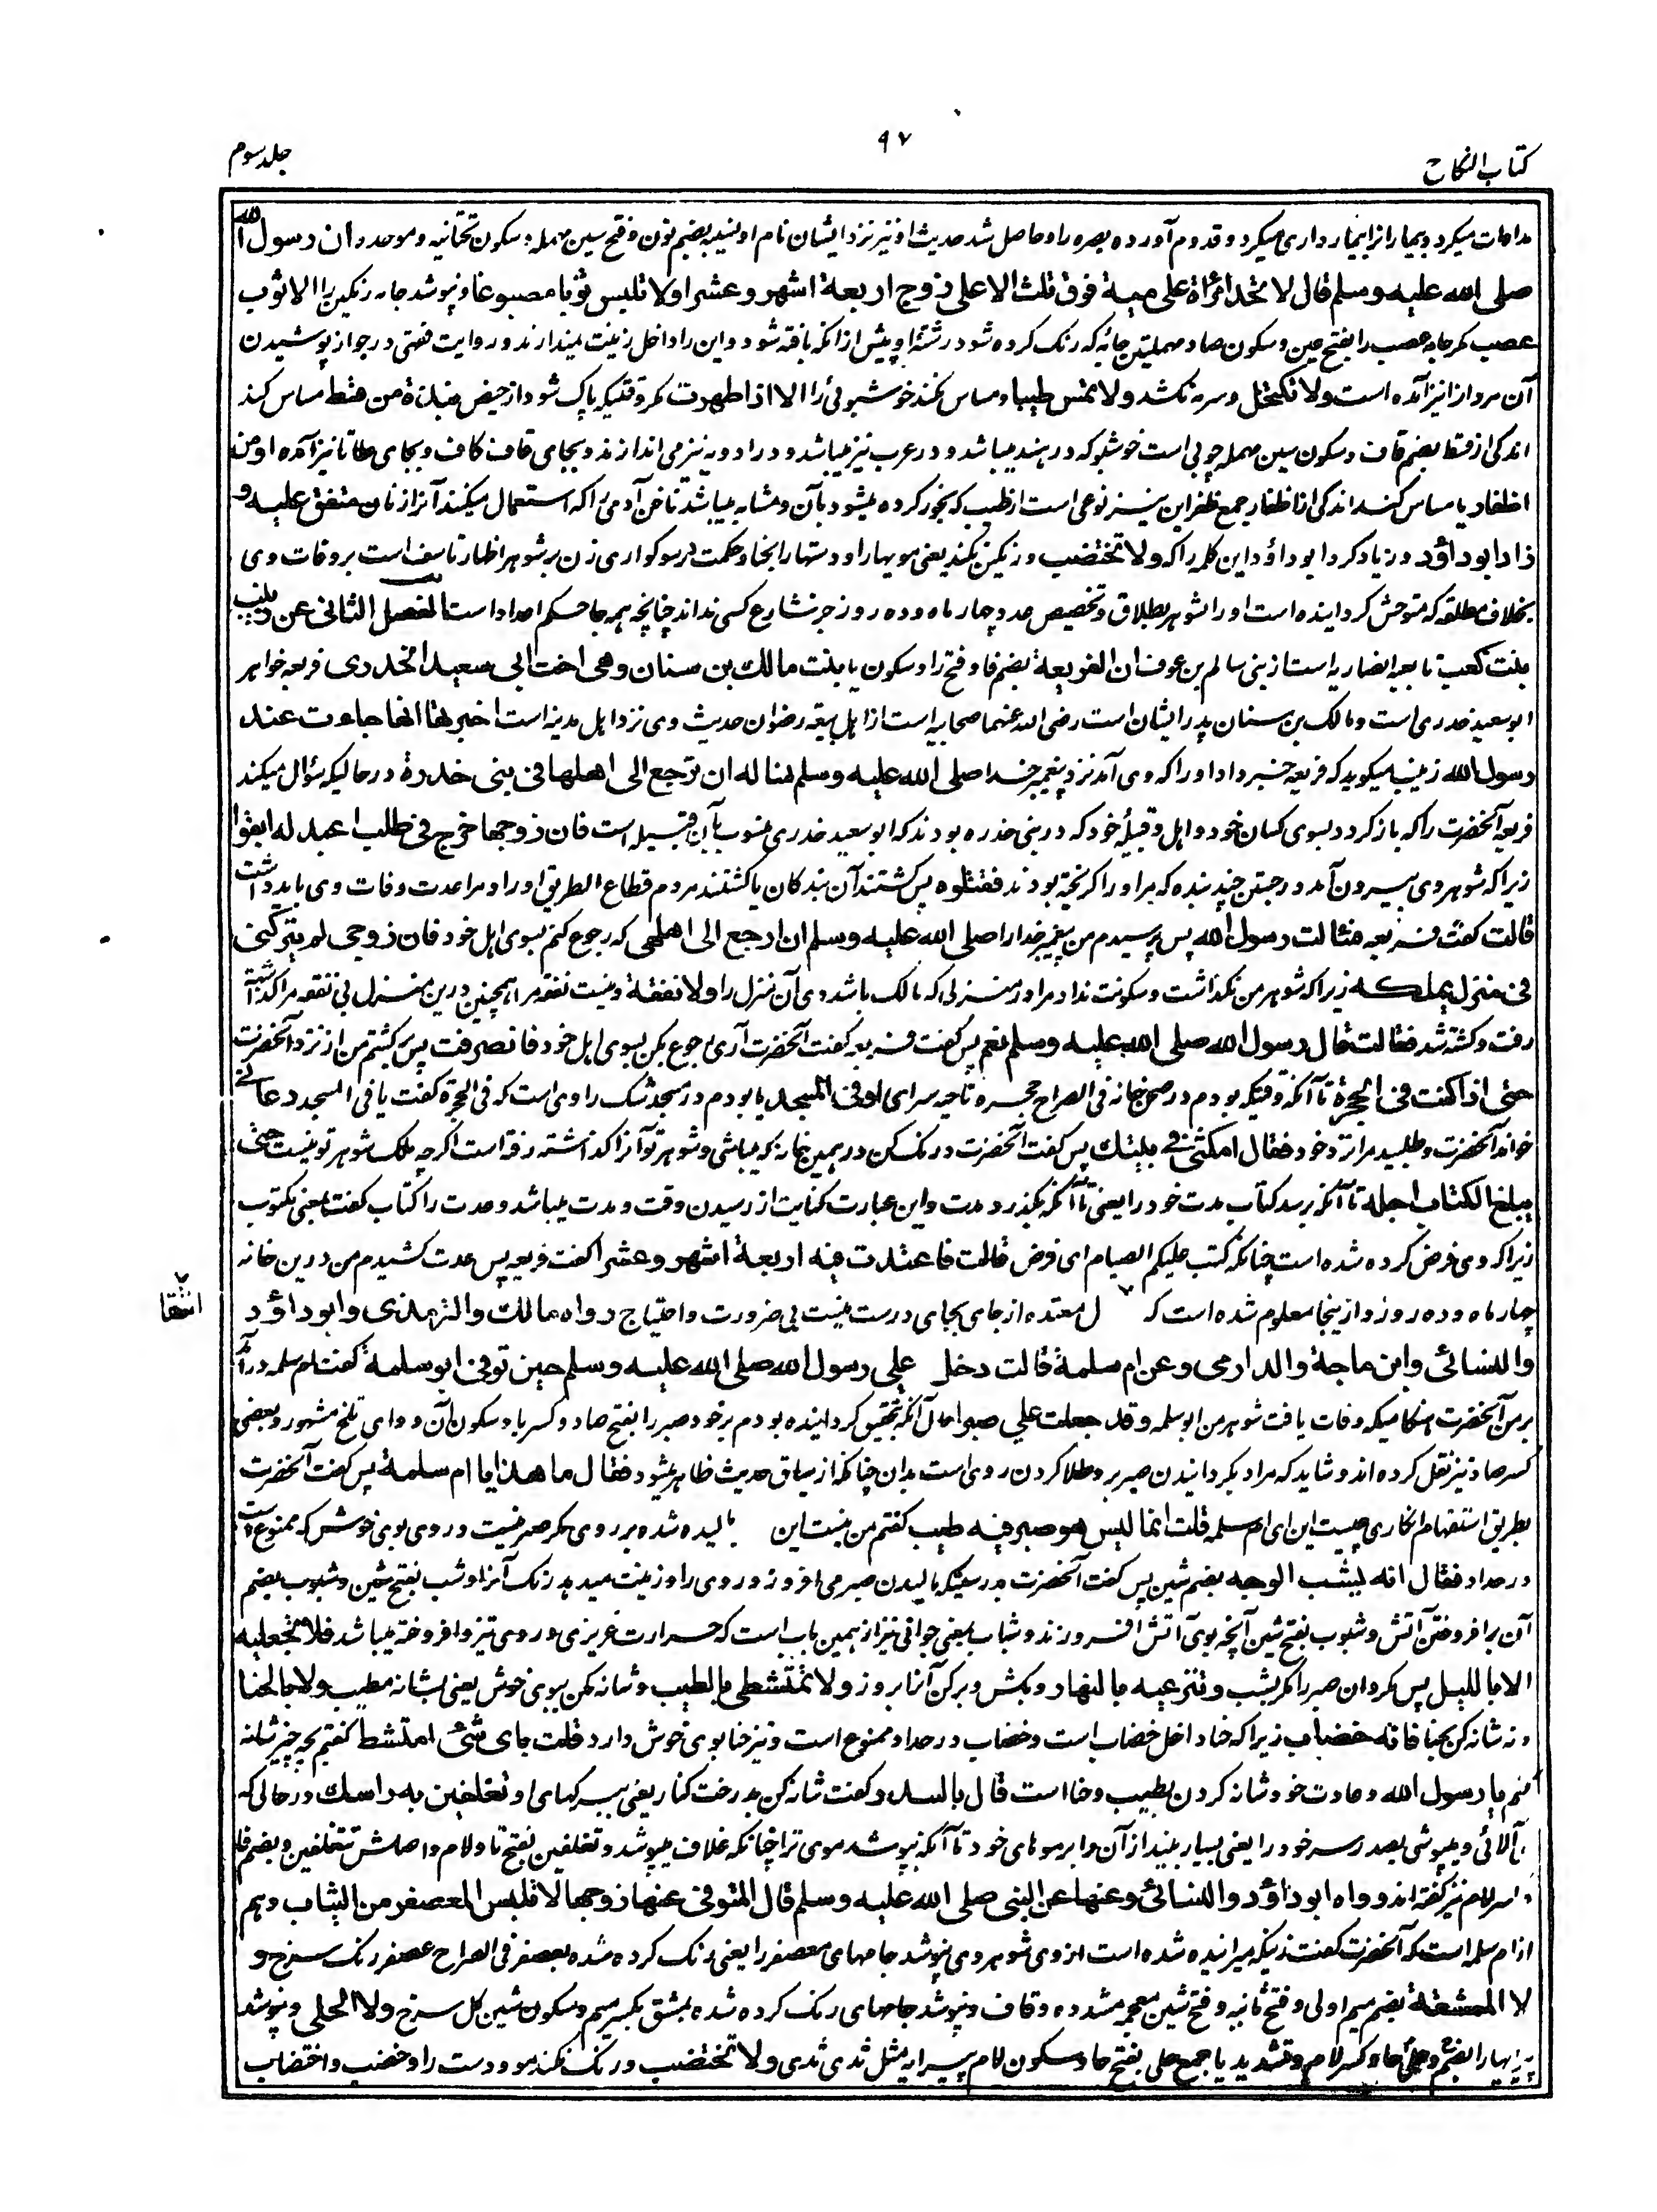 کتاب النکاح
۹۷
جلد سوم
مداوات میکرد و بیماران را بیمارداری میکرد و قدوم آورده بصره را و حاصل شد حدیث او نیز نزد ایشان نام او نسیبه بضم نون و فتح سین مهمله و سکون تحتانیه و موحده ان رسول الله
صلی الله علیه وسلم قال لا تحد امرأة علی میة فوق ثلث الا علی زوج اربعة اشهر وعشرا ولا تلبس ثوبا مصبوغا و نپوشد جامه رنگین را الا ثوب
عصب مگر جامه عصب را بفتح عین و سکون صاد مهملتین جامه که رنگ کرده شود رشتهٔ او پیش از انکه بافته شود و این را داخل زینت نمیدارند و روایت فقهی در جواز پوشیدن
آن مرد انرا نیز آمده است ولا تکتحل و سرمه نکشد ولا تمس طیبا و مساس نکند خوشبوئی را الا اذا طهرت مگر وقتیکه پاک شود از حیض نبذة من قسط مساس کند
اندکی از قسط بضم قاف و سکون سین مهمله چوبی است خوشبو که در هند میباشد و در عرب نیز میباشد و در ادویه نیز می اندازند و بجای قاف کاف و بجای طا تا نیز آمده او من
اظفار یا مساس کند اندکی از اظفار جمع ظفر این نیز نوعی است از طیب که بخور کرده میشود بآن و مشابه میباشد ناخن آدمی را که استعمال میکنند آنرا زنان متفق علیه و
زاد ابو داؤد و زیاد کرد ابو داؤد این کلمه را که ولا تختضب و رنگین نکند یعنی مویها را و دستها را بحنا و حکمت در سوگواری زن بر شوهر اظهار تاسف است بر وفات وی
بخلاف مطلقه که متوحش گردانیده است او را شوهر بطلاق و تخصیص عدد چهار ماه و ده روز جز شارع کسی نداند چنانچه همه جا حکم اعداد است الفصل الثانی عن زینب
بنت کعب تابعیه انصاریه است از بنی سالم بن عوف ان الفریعة بضم فا و فتح را و سکون یا بنت مالک بن سنان وهی اخت ابی سعید الخدری فریعه خواهر
ابو سعید خدری است و مالک بن سنان پدر ایشان است رضی الله عنهما صحابیه است از اهل بیعة رضوان حدیث وی نزد اهل مدینه است اخبرتها انها جاءت عند
رسول الله زینب میگوید که فریعه خبر داد او را که وی آمد نزد پیغمبر خدا صلی الله علیه وسلم تساله ان ترجع الی اهلها فی بنی خدرة در حالیکه سؤال میکند
فریعه آنحضرت را که باز گردد بسوی کسان خود و اهل و قبیلهٔ خود که در بنی خدره بودند که ابو سعید خدری منسوب بآن قبیله است فان زوجها خرج فی طلب اعبد له ابقوا
زیرا که شوهر وی بیرون آمد در جستن چند بنده که مر او را گریخته بودند فقتلوه پس کشتند آن بندگان یا کشتند مردم قطاع الطریق او را و مرا عدت وفات وی باید داشت
قالت گفت فریعه فسالت رسول الله پس پرسیدم من پیغمبر خدا را صلی الله علیه وسلم ان ارجع الی اهلی که رجوع کنم بسوی اهل خود فان زوجی لم یترکنی
فی منزل یملکه زیرا که شوهر من نگذاشت و سکونت نداد مرا در منزلی که مالک باشد وی آن منزل را ولا نفقة و نیست نفقه مرا همچنین درین منزل بی نفقه مرا گذاشته
رفت و کشته شد فقالت قال رسول الله صلی الله علیه وسلم نعم پس گفت فریعه گفت آنحضرت آری رجوع بکن بسوی اهل خود فانصرفت پس برگشتم من از نزد آنحضرت
حتی اذا کنت فی الحجرة تا آنکه وقتیکه بودم در صحن خانه فی الصراح حجره ناحیه سرای او فی المسجد یا بودم در مسجد شک راوی است که فی الحجرة گفت یا فی المسجد دعانی
خواند آنحضرت و طلبید مرا نزد خود فقال امکثی فی بیتک پس گفت آنحضرت درنگ کن در همین خانه که میباشی و شوهر تو آنرا گذاشته رفته است اگرچه ملک شوهر تو نیست حتی
یبلغ الکتاب اجله تا آنکه برسد کتاب مدت خود را یعنی تا آنکه بگذرد مدت و این عبارت کنایت از رسیدن وقت و مدت میباشد و عدت را کتاب گفت بمعنی مکتوب
زیرا که وی فرض کرده شده است چنانکه کتب علیکم الصیام ای فرض قالت فاعتدت فیه اربعة اشهر وعشرا گفت فریعه پس عدت کشیدم من درین خانه
چهار ماه و ده روز و ازینجا معلوم شده است که ل معتده از جای بجای درست نیست بی ضرورت و احتیاج رواه مالک والترمذی وابو داؤد
انتقا
والنسائی وابن ماجة والدارمی وعن ام سلمة قالت دخل علی رسول الله صلی الله علیه وسلم حین توفی ابو سلمة گفت ام سلمه درآمد
بر من آنحضرت هنگامیکه وفات یافت شوهر من ابو سلمه وقد جعلت علی صبرا حال آنکه بتحقیق گردانیده بودم بر خود صبر را بفتح صاد و کسر با و سکون آن دوای تلخ مشهور و بعضی
کسر صاد نیز نقل کرده اند و شاید که مراد بگردانیدن صبر برو طلا کردن روی است بدان چنانکه از سیاق حدیث ظاهر میشود فقال ما هذا یا ام سلمة پس گفت آنحضرت
بطریق استفهام انکاری چیست این ای ام سلمه قلت انما لیس هو صبر فیه طیب گفتم من نیست این مالیده شده بر روی مگر صبر نیست در وی بوی خوش که ممنوع است
در حداد فقال انه یشب الوجه بضم شین پس گفت آنحضرت بدرستیکه مالیدن صبر می افروزد روی را و زینت میدهد رنگ آنرا و شب بفتح شین و شبوب بضم
آن برافروختن آتش و شبوب بفتح شین آنچه بوی آتش افروزند و شباب بمعنی جوانی نیز از همین باب است که حرارت غریزی در وی تیز و افروخته میباشد فلا تجعلیه
الا باللیل پس مگردان صبر را مگر بشب وتنزعیه بالنهار و بکش و برکن آنرا بروز ولا تمتشطی بالطیب و شانه مکن ببوی خوش یعنی بشانه مطیب ولا بالحنا
و نه شانه کن بحنا فانه خضاب زیرا که حنا داخل خضاب است و خضاب در حداد ممنوع است و نیز حنا بوی خوش دارد قلت بای شئ امتشط گفتم بچه چیز شانه
کنم یا رسول الله و عادت خود شانه کردن بطیب و حنا است قال بالسدر گفت شانه کن بدرخت کنار یعنی ببرگهای او تغلفین به راسک در حالی که
می آلائی و میپوشی بسدر سر خود را یعنی بسیار بینداز آن را بر موهای خود تا آنکه بپوشد موی ترا چنانکه غلاف میپوشد و تغلفین بفتح تا و لام و اصلش تتغلفین و بضم تا
و کسر لام نیز گفته اند رواه ابو داؤد والنسائی وعنها عن النبی صلی الله علیه وسلم قال المتوفی عنها زوجها لا تلبس المعصفر من الثیاب و هم
از ام سلمه است که آنحضرت گفت زنیکه میرانیده شده است از وی شوهر وی نپوشد جامهای معصفر را یعنی رنگ کرده شده بعصفر فی الصراح عصفر رنگ سرخ و
لا الممشقة بضم میم اولی و فتح ثانیه و فتح شین معجمه مشدده و قاف و نپوشد جامهای رنگ کرده شده بمشق بکسر میم و سکون شین گل سرخ ولا الحلی و نپوشد
پیرایها را بضم حا و کسر لام و تشدید یا جمع حلی بفتح حا و سکون لام پیرایه مثل ثدی ثدی ولا تختضب و رنگ نکند مو و دست را و خضب و اختضاب